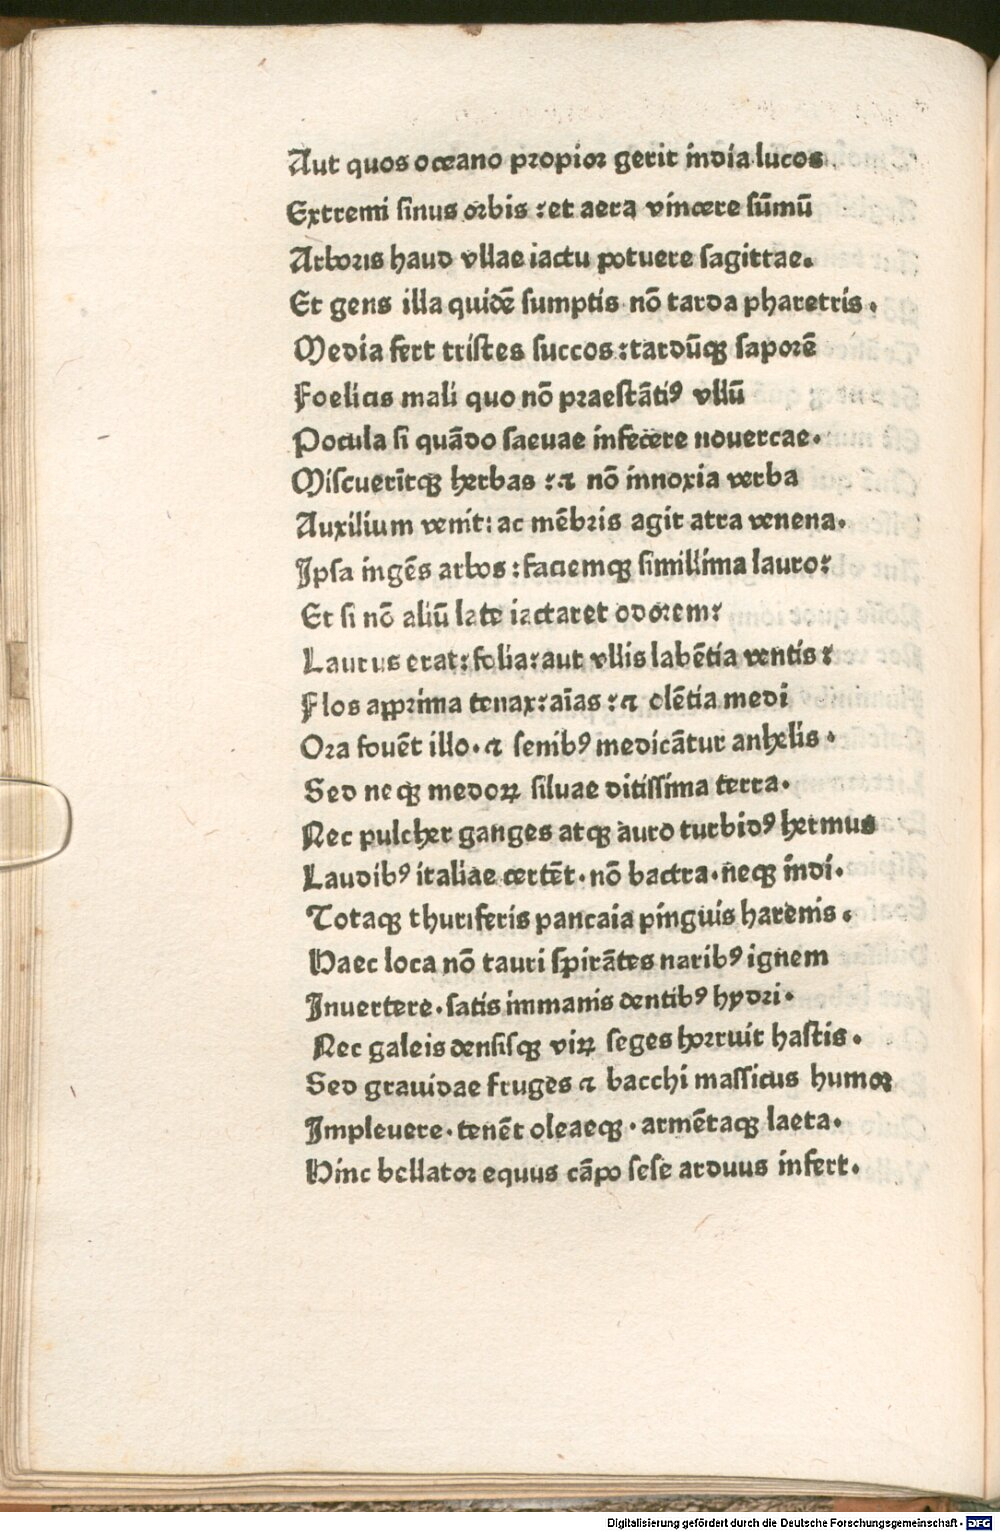 Aut quos oceano propior gerit india lucos
Extremi sinus orbis : et aera vincere sūmū
Arboris haud vllae iactu potuere sagittae.
Et gens illa quidē sumptis nō tarda pharetris .
Media fert tristes succos : tardūqꝫ saporē
Foelicis mali quo nō praestātiꝰ vllū
Pocula si quādo saeuae infecere nouercae.
Miscuerītqꝫ herbas : ⁊ nō innoxia verba
Auxilium venit : ac mēbris agit atra venena.
Ipsa ingēs arbos : faciemqꝫ simillima lauro :
Et si nō aliū late iactaret odorem :
Laurus erat : folia : aut vllis labētia ventis :
Flos apprima tenax : aīas : ⁊ olētia medi
Ora fouēt illo . ⁊ senibꝰ medicātur anhelis .
Sed neqꝫ medoꝝ siluae ditissima terra .
Nec pulcher ganges atqꝫ auro turbidꝰ hermus
Laudibꝰ italiae certēt . nō bactra . neqꝫ indi .
Totaqꝫ thuriferis pancaia pinguis harenis .
Haec loca nō tauri spirātes naribꝰ ignem
Inuertere . satis immanis dentibꝰ hydri .
Nec galeis densisqꝫ viꝝ seges horruit hastis .
Sed grauidae fruges ⁊ bacchi massicus humor
Impleuere . tenēt oleaeqꝫ . armētaqꝫ laeta .
Hinc bellator equus cāpo sese arduus infert .
Digitalisierung gefördert durch die Deutsche Forschungsgemeinschaft - DFG